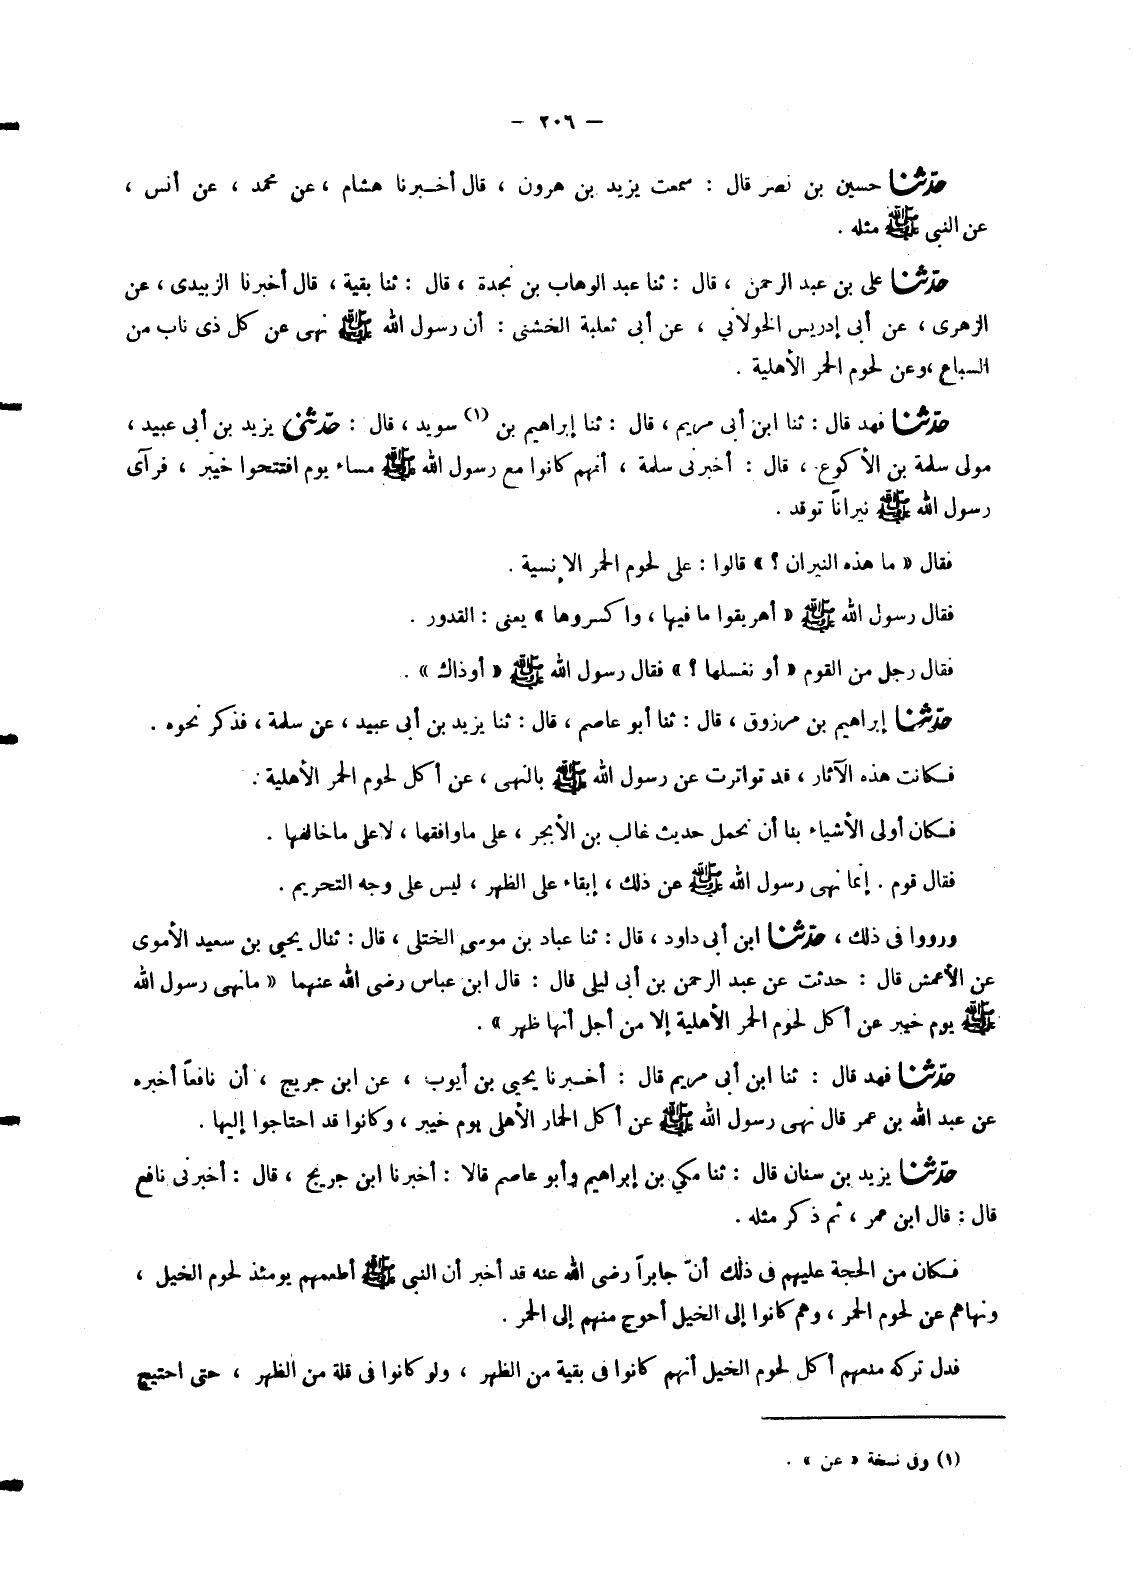 — ٢٠٦ —
حدّثنا حسين بن نصر قال : سمعت يزيد بن هرون ، قال أخبرنا هشام ، عن محمد ، عن أنس ،
عن النبى ﷺ مثله .
حدّثنا على بن عبد الرحمن ، قال : ثنا عبد الوهاب بن نجدة ، قال : ثنا بقية ، قال أخبرنا الزبيدى ، عن
الزهرى ، عن أبى إدريس الخولاني ، عن أبى ثعلبة الخشنى : أن رسول الله ﷺ نهى عن كل ذى ناب من
السباع ،وعن لحوم الحمر الأهلية .
حدّثنا فهد قال : ثنا ابن أبى مريم ، قال : ثنا إبراهيم بن (١) سويد ، قال : حدّثنى يزيد بن أبى عبيد ،
مولى سلمة بن الأكوع ، قال : أخبرنى سلمة ، أنهم كانوا مع رسول الله ﷺ مساء يوم افتتحوا خيبر ، فرآى
رسول الله ﷺ نيراناً توقد .
فقال « ما هذه النيران ؟ » قالوا : على لحوم الحمر الإنسية .
فقال رسول الله ﷺ « أهريقوا ما فيها ، واكسروها » يعنى : القدور .
فقال رجل من القوم « أو نغسلها ؟ » فقال رسول الله ﷺ « أوذاك » .
حدّثنا إبراهيم بن مرزوق ، قال : ثنا أبو عاصم ، قال : ثنا يزيد بن أبى عبيد ، عن سلمة ، فذكر نحوه .
فكانت هذه الآثار ، قد تواترت عن رسول الله ﷺ بالنهى ، عن أكل لحوم الحمر الأهلية .
فكان أولى الأشياء بنا أن نحمل حديث غالب بن الأبجر ، على ماوافقها ، لاعلى ماخالفها .
فقال قوم . إنما نهى رسول الله ﷺ عن ذلك ، إبقاء على الظهر ، ليس على وجه التحريم .
ورووا فى ذلك ، حدّثنا ابن أبى داود ، قال : ثنا عباد بن موسى الختلى ، قال : ثنال يحيى بن سعيد الأموى
عن الأعمش قال : حدثت عن عبد الرحمن بن أبى ليلى قال : قال ابن عباس رضى الله عنهما « مانهى رسول الله
ﷺ يوم خيبر عن أكل لحوم الحمر الأهلية إلا من أجل أنها ظهر » .
حدّثنا فهد قال : ثنا ابن أبى مريم قال : أخبرنا يحيى بن أيوب ، عن ابن جريج ، أن نافعاً أخبره
عن عبد الله بن عمر قال نهى رسول الله ﷺ عن أكل الحمار الأهلى يوم خيبر ، وكانوا قد احتاجوا إليها .
حدّثنا يزيد بن سنان قال : ثنا مكي بن إبراهيم وأبو عاصم قالا : أخبرنا ابن جريج ، قال : أخبرنى نافع
قال : قال ابن عمر ، ثم ذكر مثله .
فكان من الحجة عليهم فى ذلك أنّ جابراً رضى الله عنه قد أخبر أن النبي ﷺ أطعمهم يومئذ لحوم الخيل ،
ونهاهم عن لحوم الحمر ، وهم كانوا إلى الخيل أحوج منهم إلى الحمر .
فدل تركه منعهم أكل لحوم الخيل أنهم كانوا فى بقية من الظهر ، ولو كانوا فى قلة من الظهر ، حتى احتيج
(١) وفى نسخة « عن » .